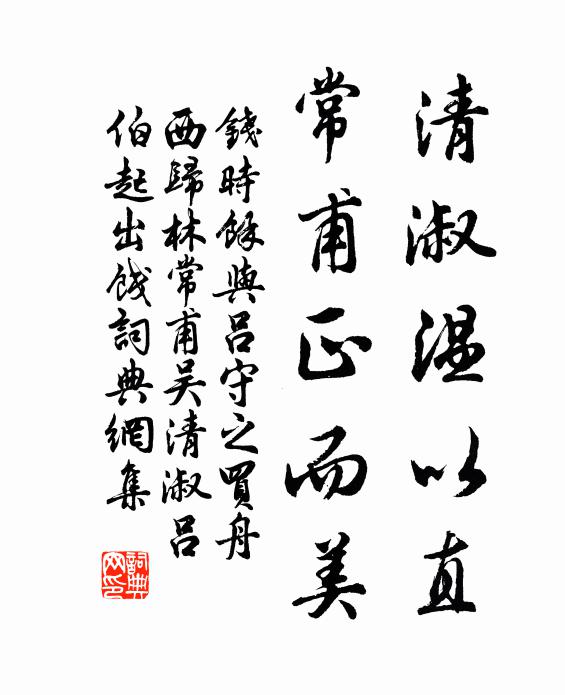 清淑温以直
常甫正而美
錢時餘與呂守之買舟
西歸林常甫吴清淑呂
伯起出餞詞典網集
詞典網印